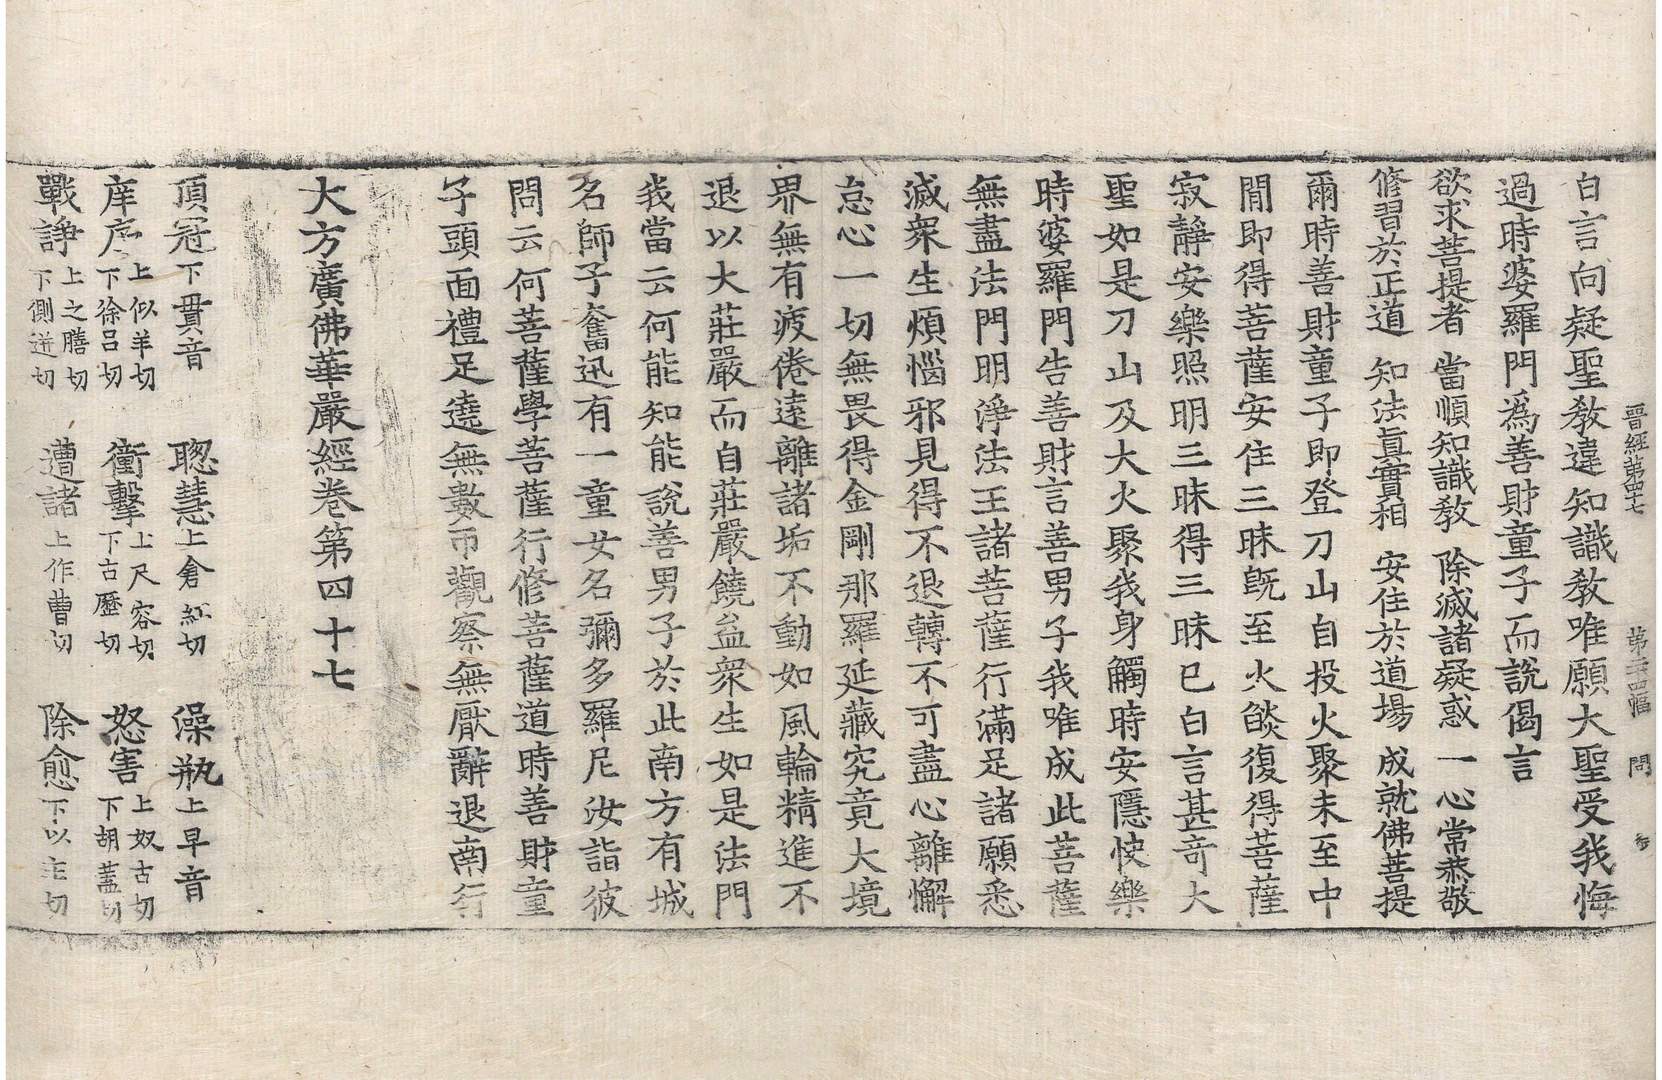 晉經第四十七　第二十四幅　問
白言向疑聖教違知識教唯願大聖受我悔
過時婆羅門為善財童子而說偈言
欲求菩提者　當順知識教　除滅諸疑惑　一心常恭敬
修習於正道　知法眞實相　安住於道場　成就佛菩提
爾時善財童子即登刀山自投火聚未至中
間即得菩薩安住三昧旣至火𦦨復得菩薩
寂靜安樂照明三昧得三昧已白言甚奇大
聖如是刀山及大火聚我身觸時安隱快樂
時婆羅門告善財言善男子我唯成此菩薩
無盡法門明淨法王諸菩薩行滿足諸願悉
滅衆生煩惱邪見得不退轉不可盡心離懈
怠心一切無畏得金剛那羅延藏究竟大境
界無有疲倦遠離諸垢不動如風輪精進不
退以大莊嚴而自莊嚴饒益衆生如是法門
我當云何能知能說善男子於此南方有城
名師子奮迅有一童女名彌多羅尼汝詣彼
問云何菩薩學菩薩行修菩薩道時善財童
子頭面禮足遶無數帀觀察無厭辭退南行
大方廣佛華嚴經卷第四十七
頂冠下貫音　聦慧上倉紅切　澡瓶上早音
庠序上似羊切下徐呂切　衝擊上尺容切下古歷切　怒害上奴古切下胡蓋切
戰諍上之膳切下側迸切　遭諸上作曹切　除愈下以主切